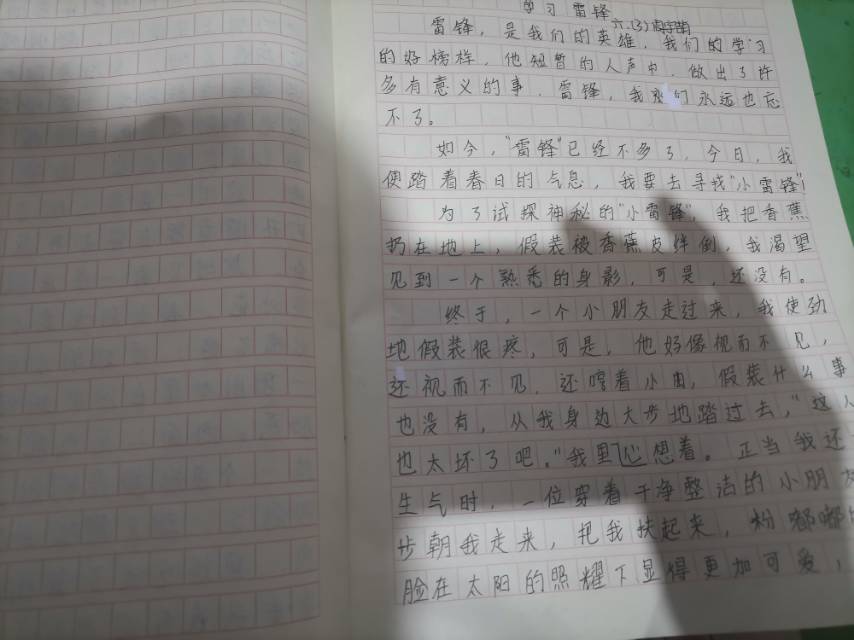 学习雷锋
六(3)
雷锋，是我们的英雄，我们的学习
的好榜样，他短暂的人声中，做出了许
多有意义的事，雷锋，我们永远也忘
不了。
如今，"雷锋"已经不多了，今日，我
便踏着春日的气息，我要去寻找"小雷锋"！
为了试探神秘的"小雷锋"，我把香蕉
扔在地上，假装被香蕉皮绊倒，我渴望
见到一个熟悉的身影，可是，还没有。
终于，一个小朋友走过来，我使劲
地假装很疼，可是，他好像视而不见，
还视而不见，还哼着小曲，假装什么事
也没有，从我身边大步地踏过去，"这人
也太坏了吧。"我里心想着。正当我还
生气时，一位穿着干净整洁的小朋友
步朝我走来，把我扶起来，粉嘟嘟的
脸在太阳的照耀下显得更加可爱，